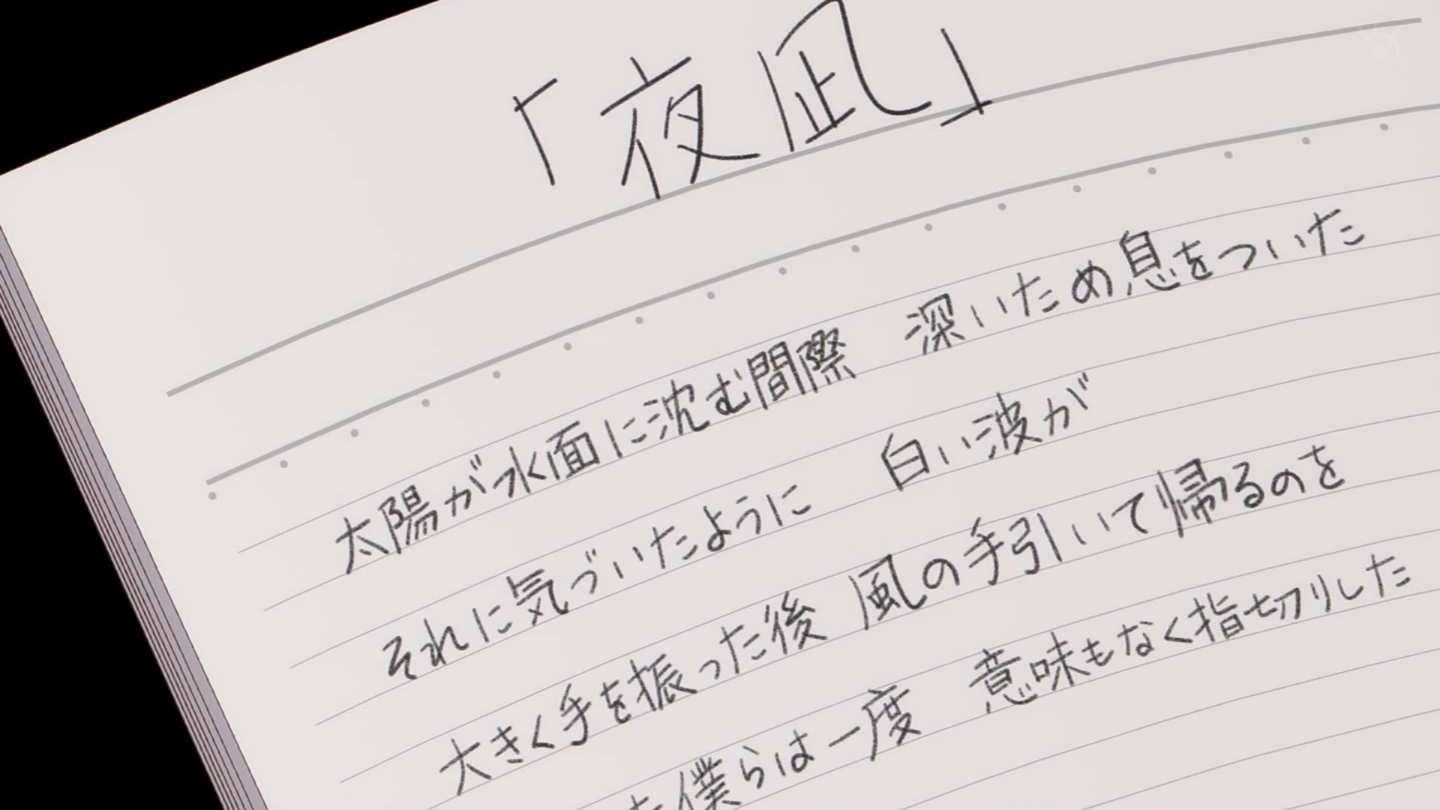 「夜凪」
太陽が水面に沈む間際　深いため息をついた
それに気づいたように　白い波が
大きく手を振った後　風の手引いて帰るのを
僕らは一度　意味もなく指切りした